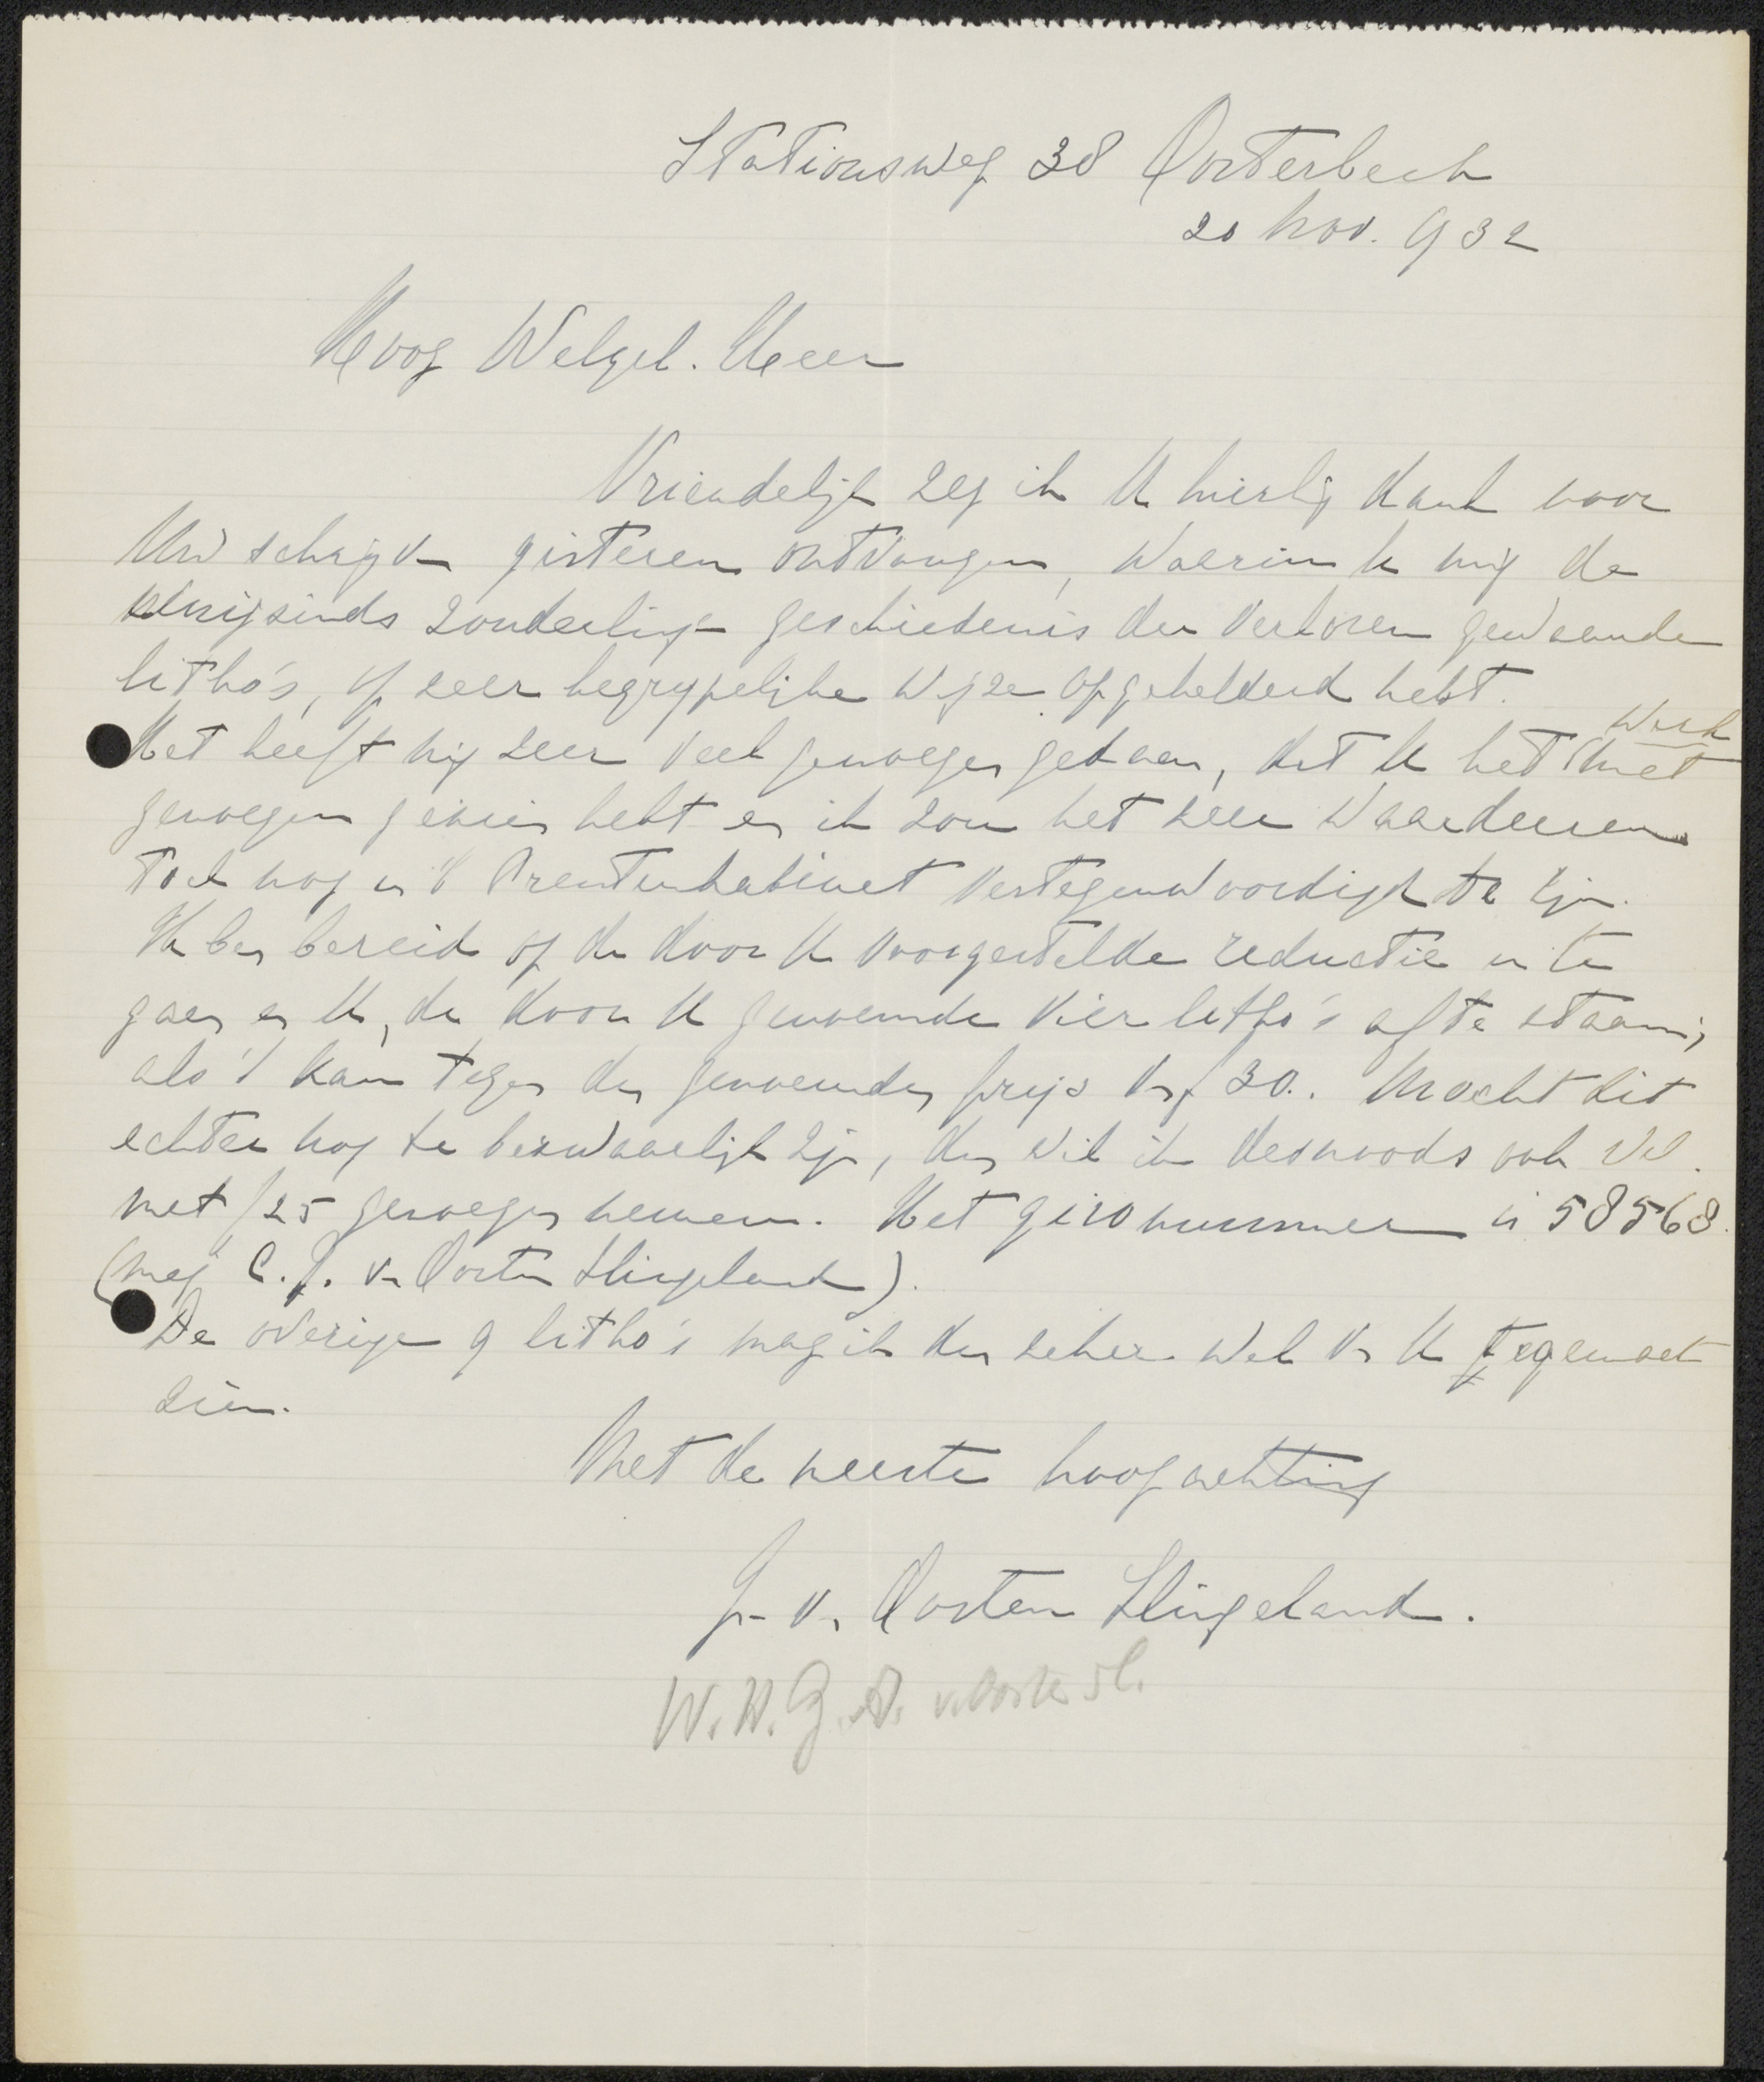 Stationsweg 38 Oosterbeek
20 Nov. 932
Hoog Welgeb. Heer
Vriendelijk zeg ik U hierbij dank voor
Uw schrijven gisteren ontvangen, waarin U mij de
eenigszinds zonderlinge geschiedenis der verloren gewaande
litho's, op zeer begrijpelijke wijze opgehelderd hebt.
Het heeft mij zeer veel genoegen gedaan, dat U het werk met
genoegen gezien hebt en ik zou het zeer waardeeren
toch nog in 't Prentenkabinet vertegenwoordigd te zijn.
Ik ben bereid op de door U voorgestelde reductie in te
gaan en U, de door U genoemde vier litho's af te staan,
als 't kan tegen den genoemden prijs v. f 30.. Mocht dit
echter nog te bezwaarlijk zijn, dan wil ik desnoods ook wel
met f 25 genoegen nemen. Het gironummer is 58568.
(Mej C. J. v. Oosten Slingeland).
De overige 9 litho's mag ik dan zeker wel v. U tegemoet
zien.
Met de meeste hoogachting
G. v. Oosten Slingeland.
W. H. G. A. v. Oosten Sl.